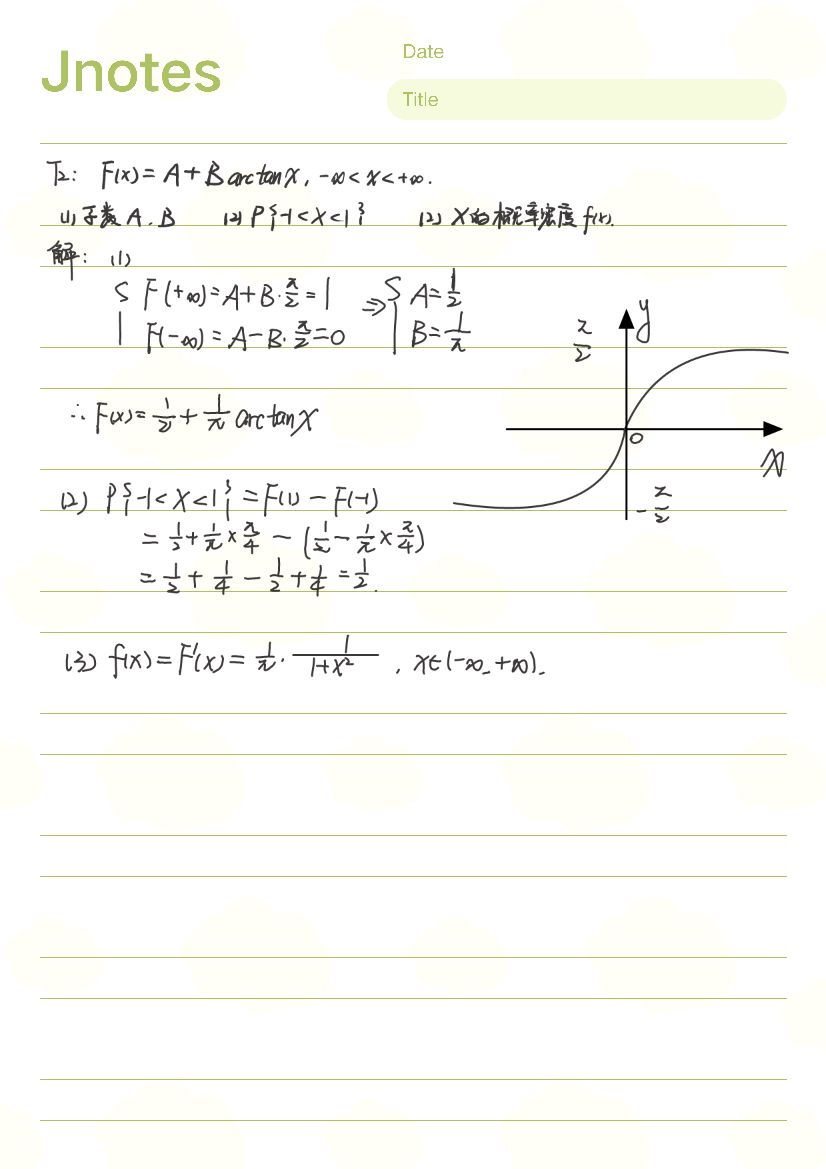 Jnotes
Date
Title
T2: F(x) = A + B arctan x, -∞ < x < +∞.
(1) 子数 A、B (2) P{-1 < X < 1} (2) X的概率密度 f(x).
解: (1)
{ F(+∞) = A + B·π/2 = 1 ⇒ { A = 1/2
F(-∞) = A - B·π/2 = 0 B = 1/π
y
π/2
∴ F(x) = 1/2 + 1/π arctan x
0
x
-π/2
(2) P{-1 < X < 1} = F(1) - F(-1)
= 1/2 + 1/π × π/4 - (1/2 - 1/π × π/4)
= 1/2 + 1/4 - 1/2 + 1/4 = 1/2.
(3) f(x) = F'(x) = 1/π · 1/(1+x²), x∈(-∞, +∞).